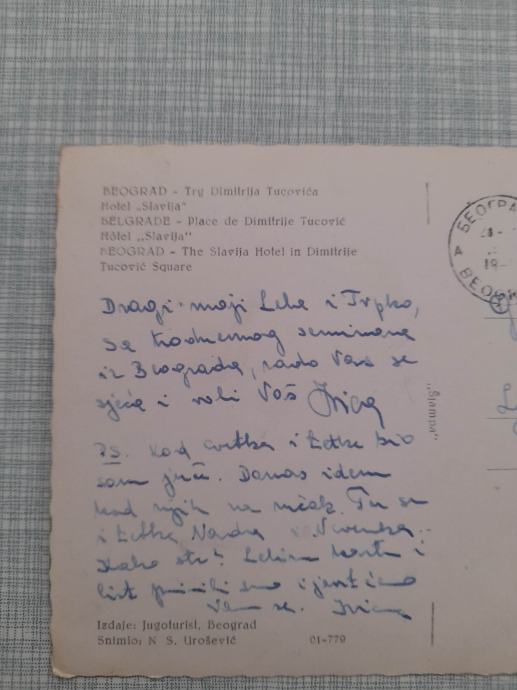 BEOGRAD - Trg Dimitrija Tucovića
Hotel „Slavija"
BELGRADE - Place de Dimitrije Tucović
Hôtel „Slavija"
BEOGRAD - The Slavija Hotel in Dimitrije
Tucović Square
Dragi moji Leha i Trpko,
sa trodnevnog seminara
iz Beograda, rado Vas se
sjeća i voli Vaš Ivica
PS. Kod Cvetka i tetke bio
sam juče. Danas idem
kod njih na ručak. Tu su
i tetka Nada i
Kako ste?
list primili smo i
Vam se. Ivica
Izdaje: Jugoturist, Beograd
Snimio: N S. Urošević 01-779
„Štampa"
БЕОГРА
А